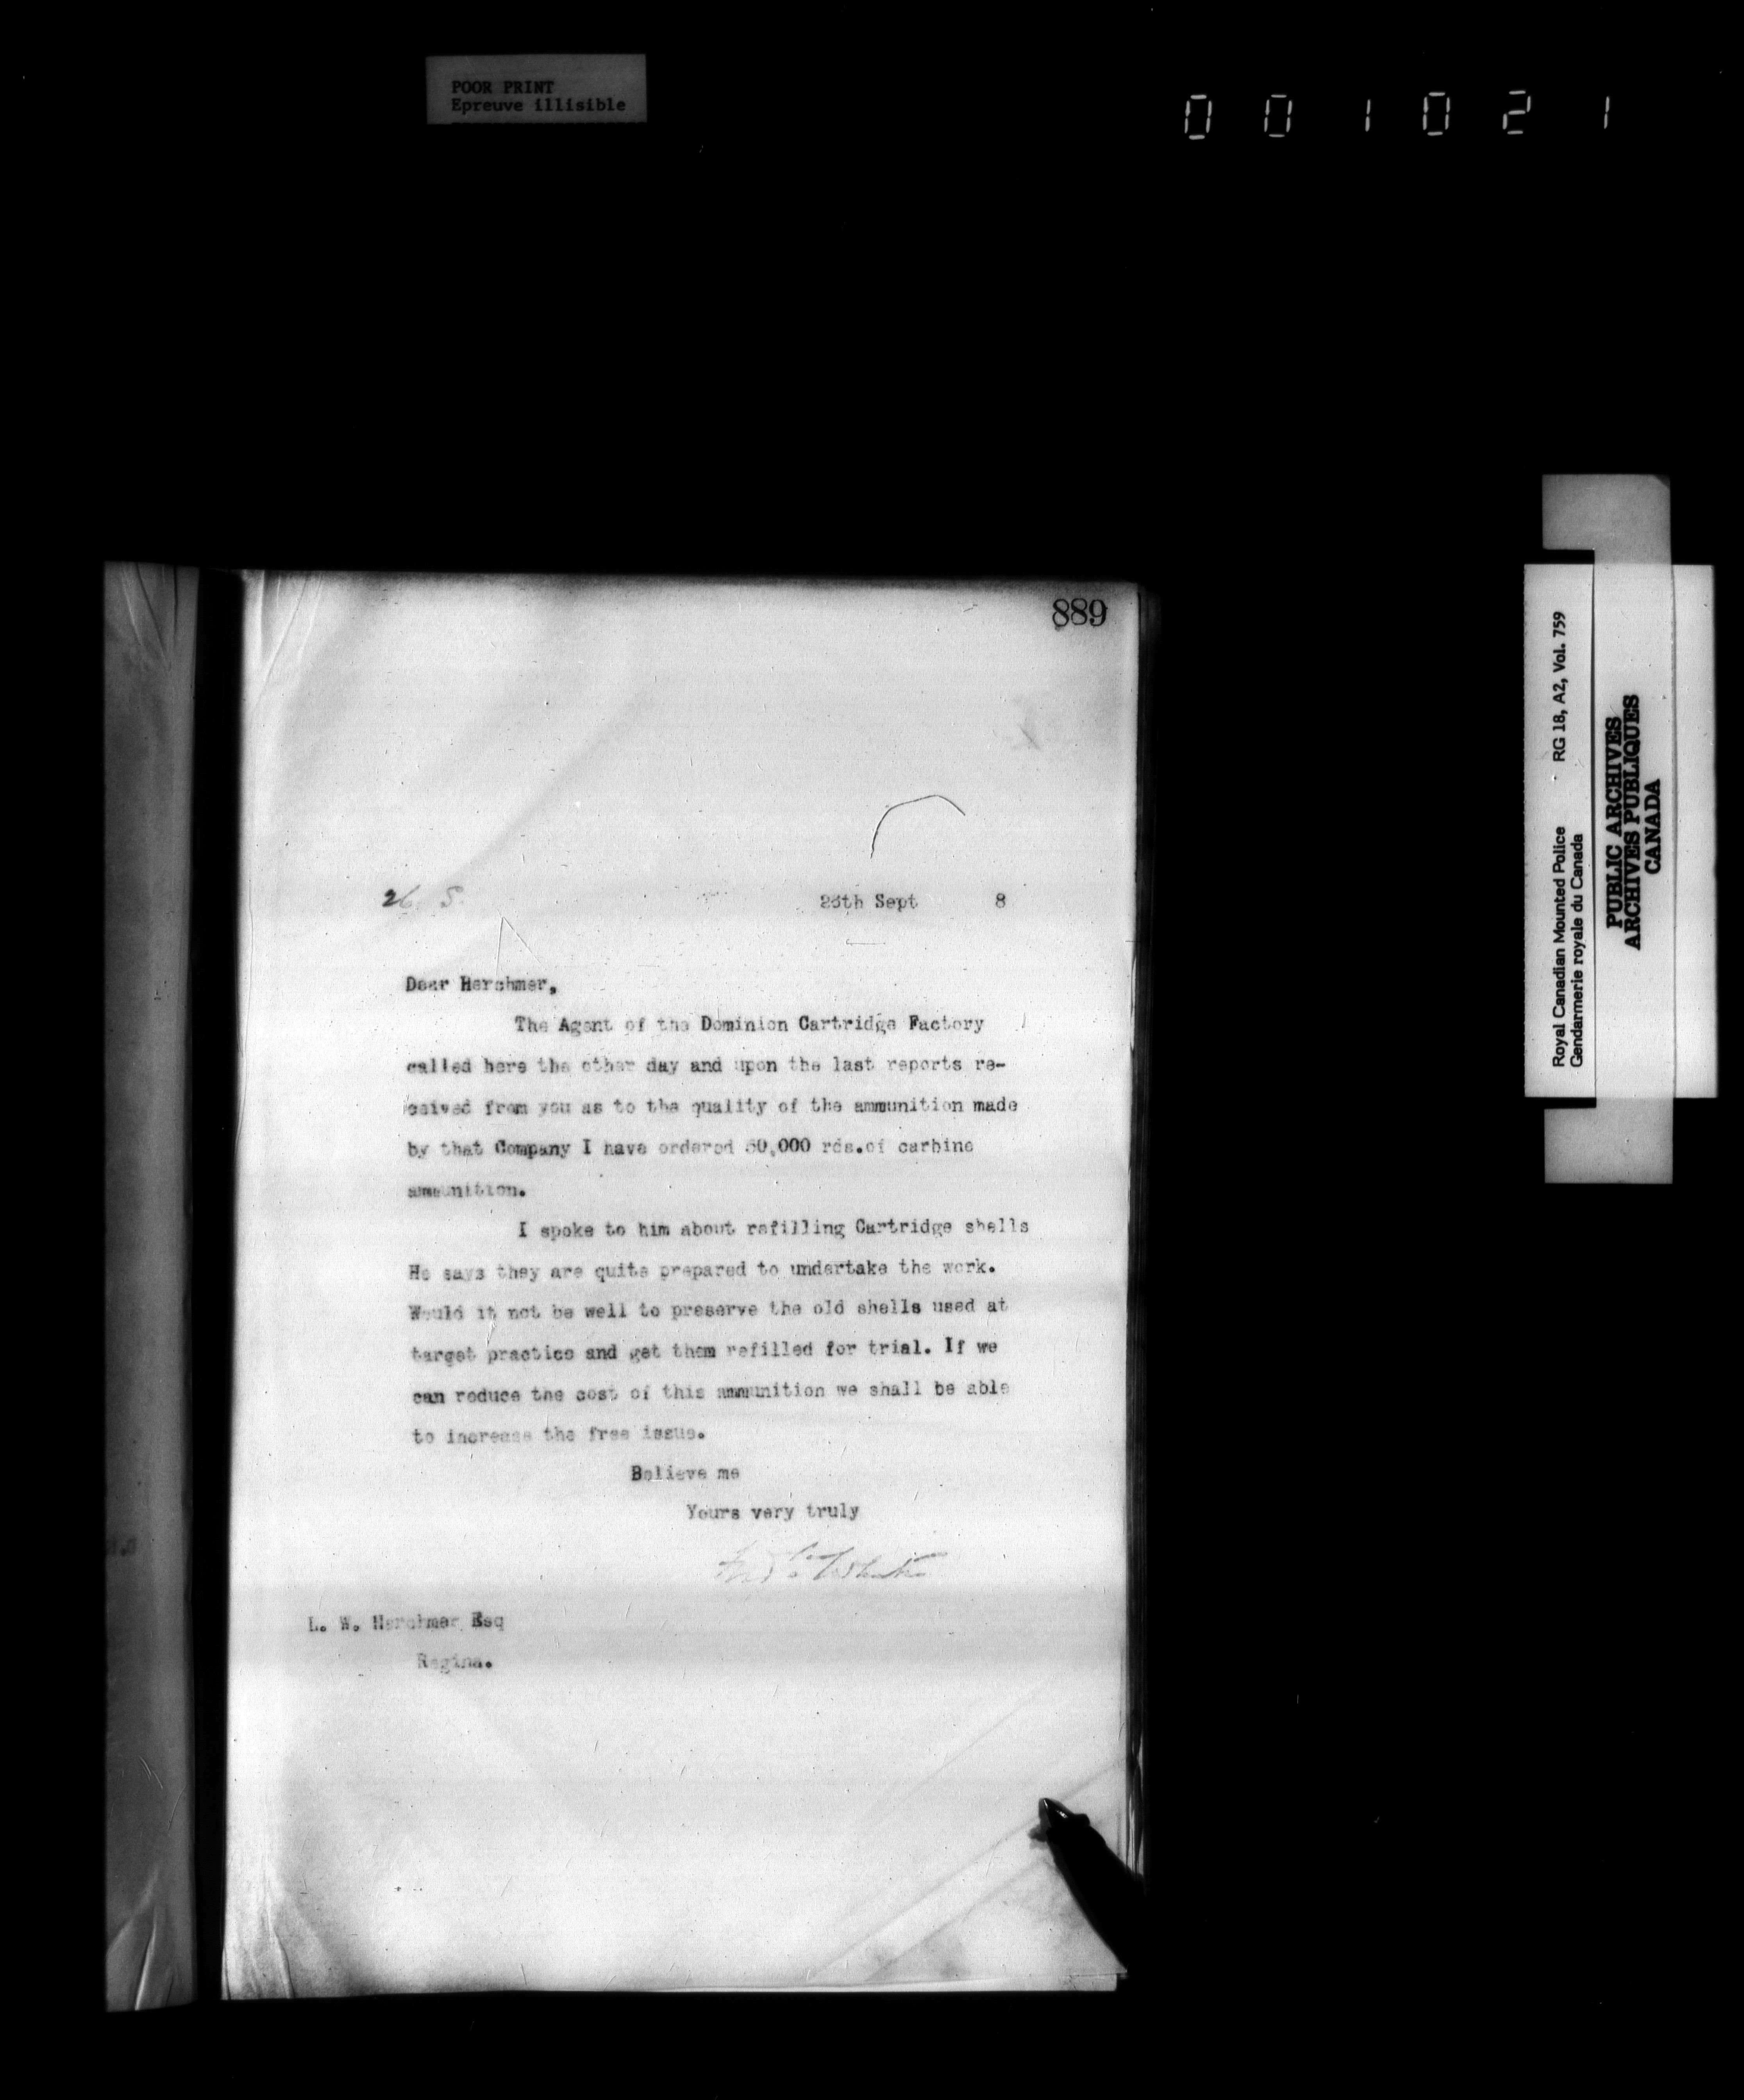 POOR PRINT
Epreuve illisible
001021
889
26 S.
26th Sept 8
Dear Herchmer,
The Agent of the Dominion Cartridge Factory
called here the other day and upon the last reports re-
ceived from you as to the quality of the ammunition made
by that Company I have ordered rds.of carbine
ammunition.
I spoke to him about refilling Cartridge shells
He says they are quite prepared to undertake the work.
Would it not be well to preserve the old shells used at
target practice and get them refilled for trial. If we
can reduce the cost of this ammunition we shall be able
to increase the free issue.
Believe me
Yours very truly
Fred White
L. W. Herchmer Esq
Regina.
Royal Canadian Mounted Police RG 18, A2, Vol. 759
Gendarmerie royale du Canada
PUBLIC ARCHIVES
ARCHIVES PUBLIQUES
CANADA